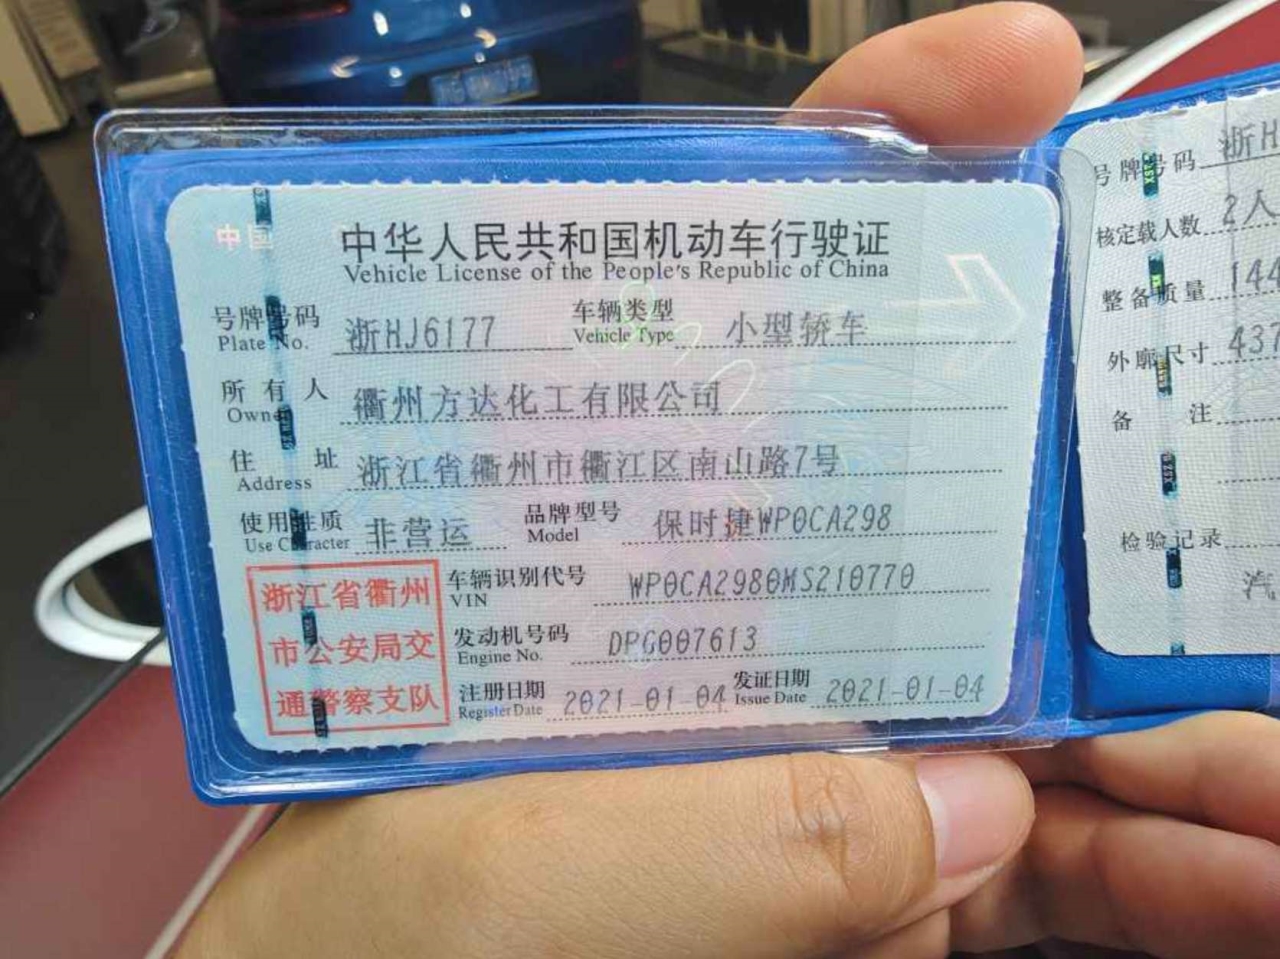 中国
中华人民共和国机动车行驶证
Vehicle License of the People's Republic of China
号牌号码 浙HJ6177 车辆类型 小型轿车
Plate No. Vehicle Type
所有人 衢州方达化工有限公司
Owner
住址 浙江省衢州市衢江区南山路7号
Address
使用性质 非营运 品牌型号 保时捷WP0CA298
Use Character Model
浙江省衢州
市公安局交
通警察支队
车辆识别代号 WP0CA2980MS210770
VIN
发动机号码 DPG007613
Engine No.
注册日期 2021-01-04 发证日期 2021-01-04
Register Date Issue Date
号牌号码 浙H
核定载人数 2人
整备质量 144
外廓尺寸 437
备注
检验记录
汽